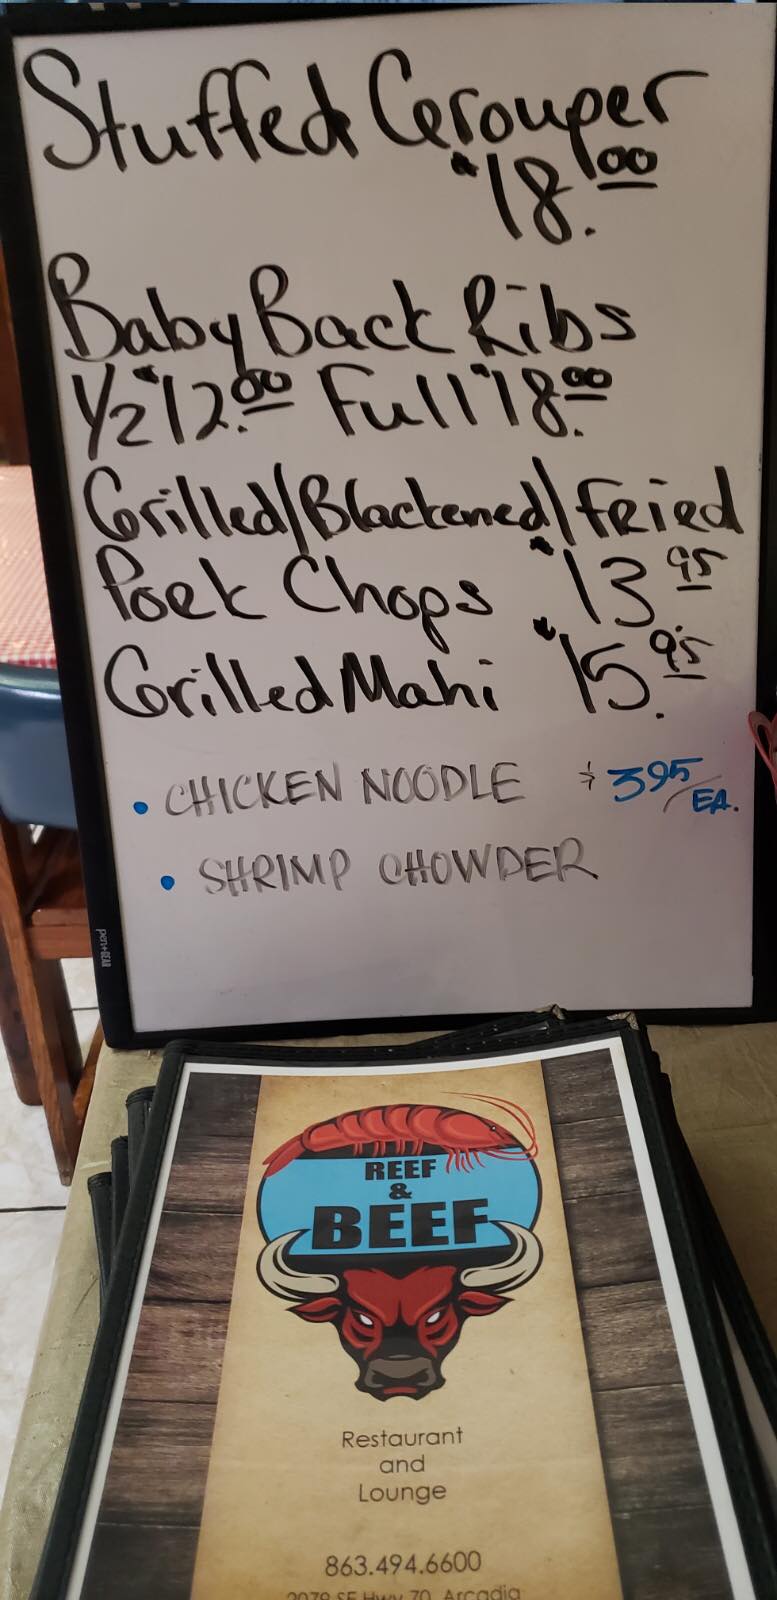 Stuffed Grouper
$18.00
Baby Back Ribs
1/2 $12.00 Full $18.00
Grilled/Blackened/Fried
Pork Chops $13.95
Grilled Mahi $15.95
• CHICKEN NOODLE $3.95/EA.
• SHRIMP CHOWDER
pen+GEAR
REEF
&
BEEF
Restaurant
and
Lounge
863.494.6600
2079 SE Hwy 70, Arcadia